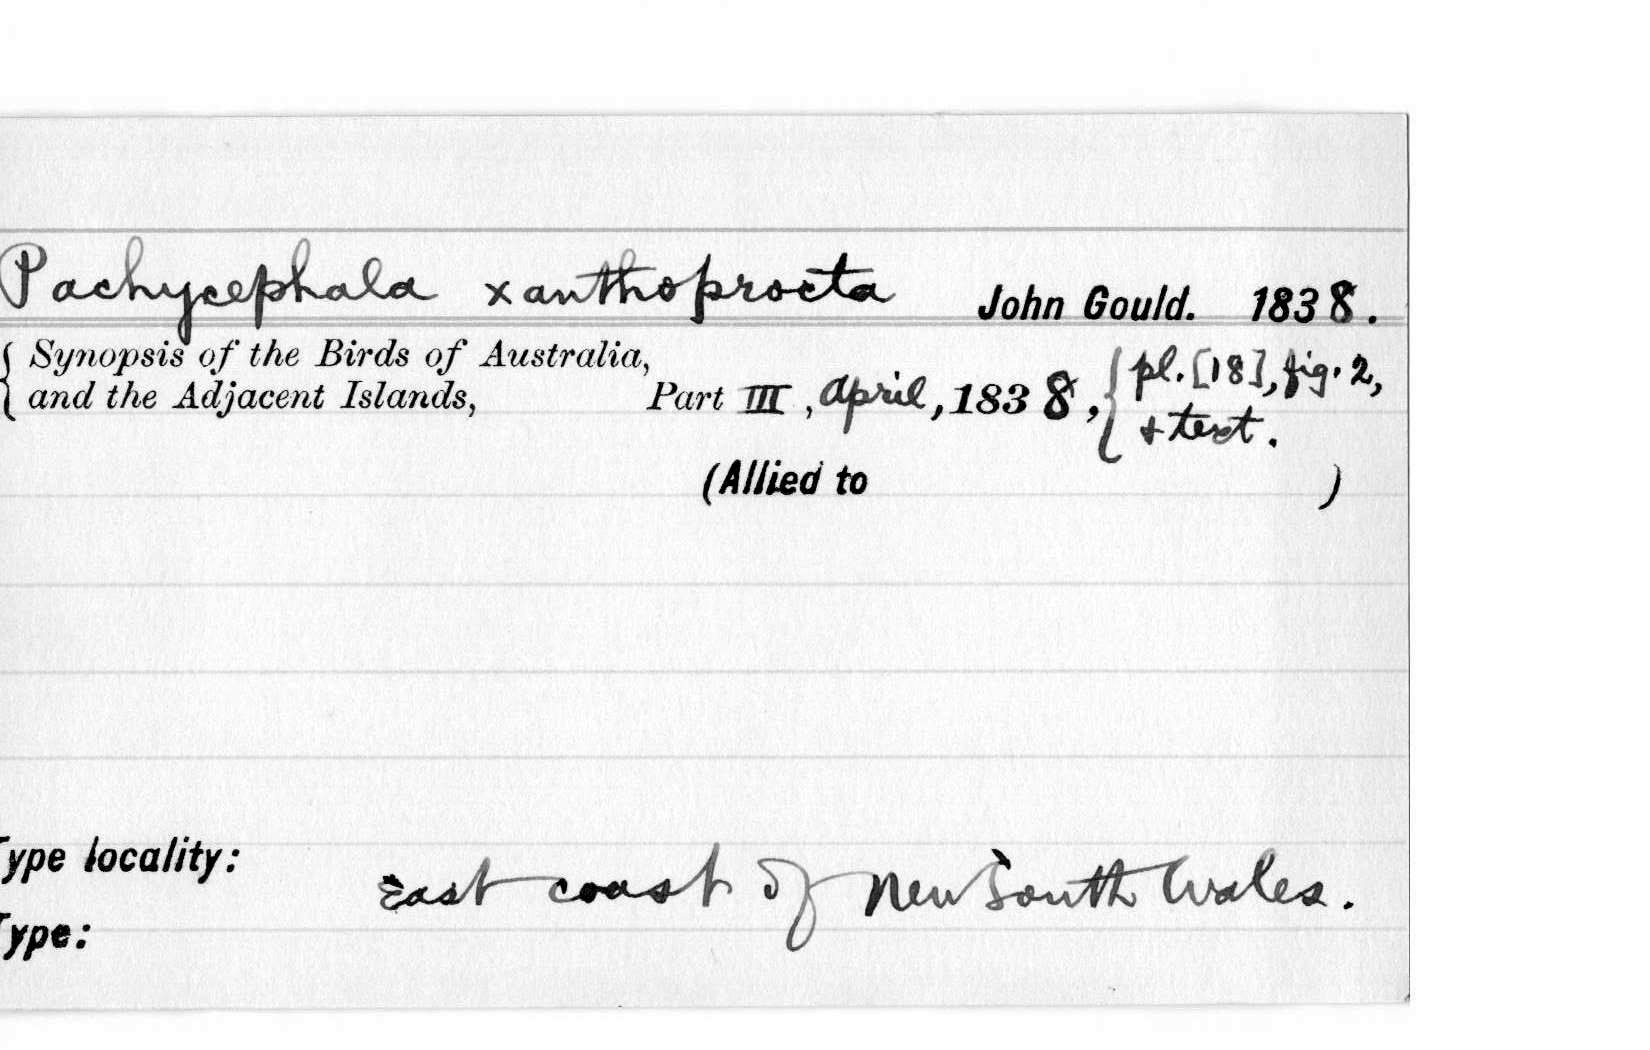 Pachycephala xanthoprocta John Gould. 1838.
{ Synopsis of the Birds of Australia,
and the Adjacent Islands, Part III, April, 1838, { pl. [18], fig. 2,
& text.
(Allied to )
Type locality:
East coast of New South Wales.
Type: